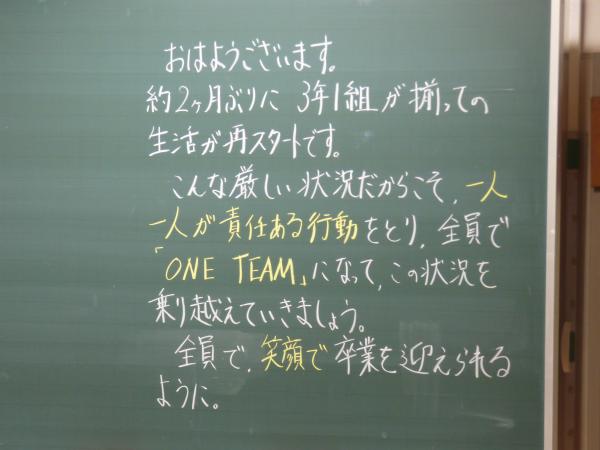 おはようございます。
約2ヶ月ぶりに 3年1組が揃っての
生活が再スタートです。
こんな厳しい状況だからこそ、一人
一人が責任ある行動をとり、全員で
「ONE TEAM」になって、この状況を
乗り越えていきましょう。
全員で、笑顔で卒業を迎えられる
ように。